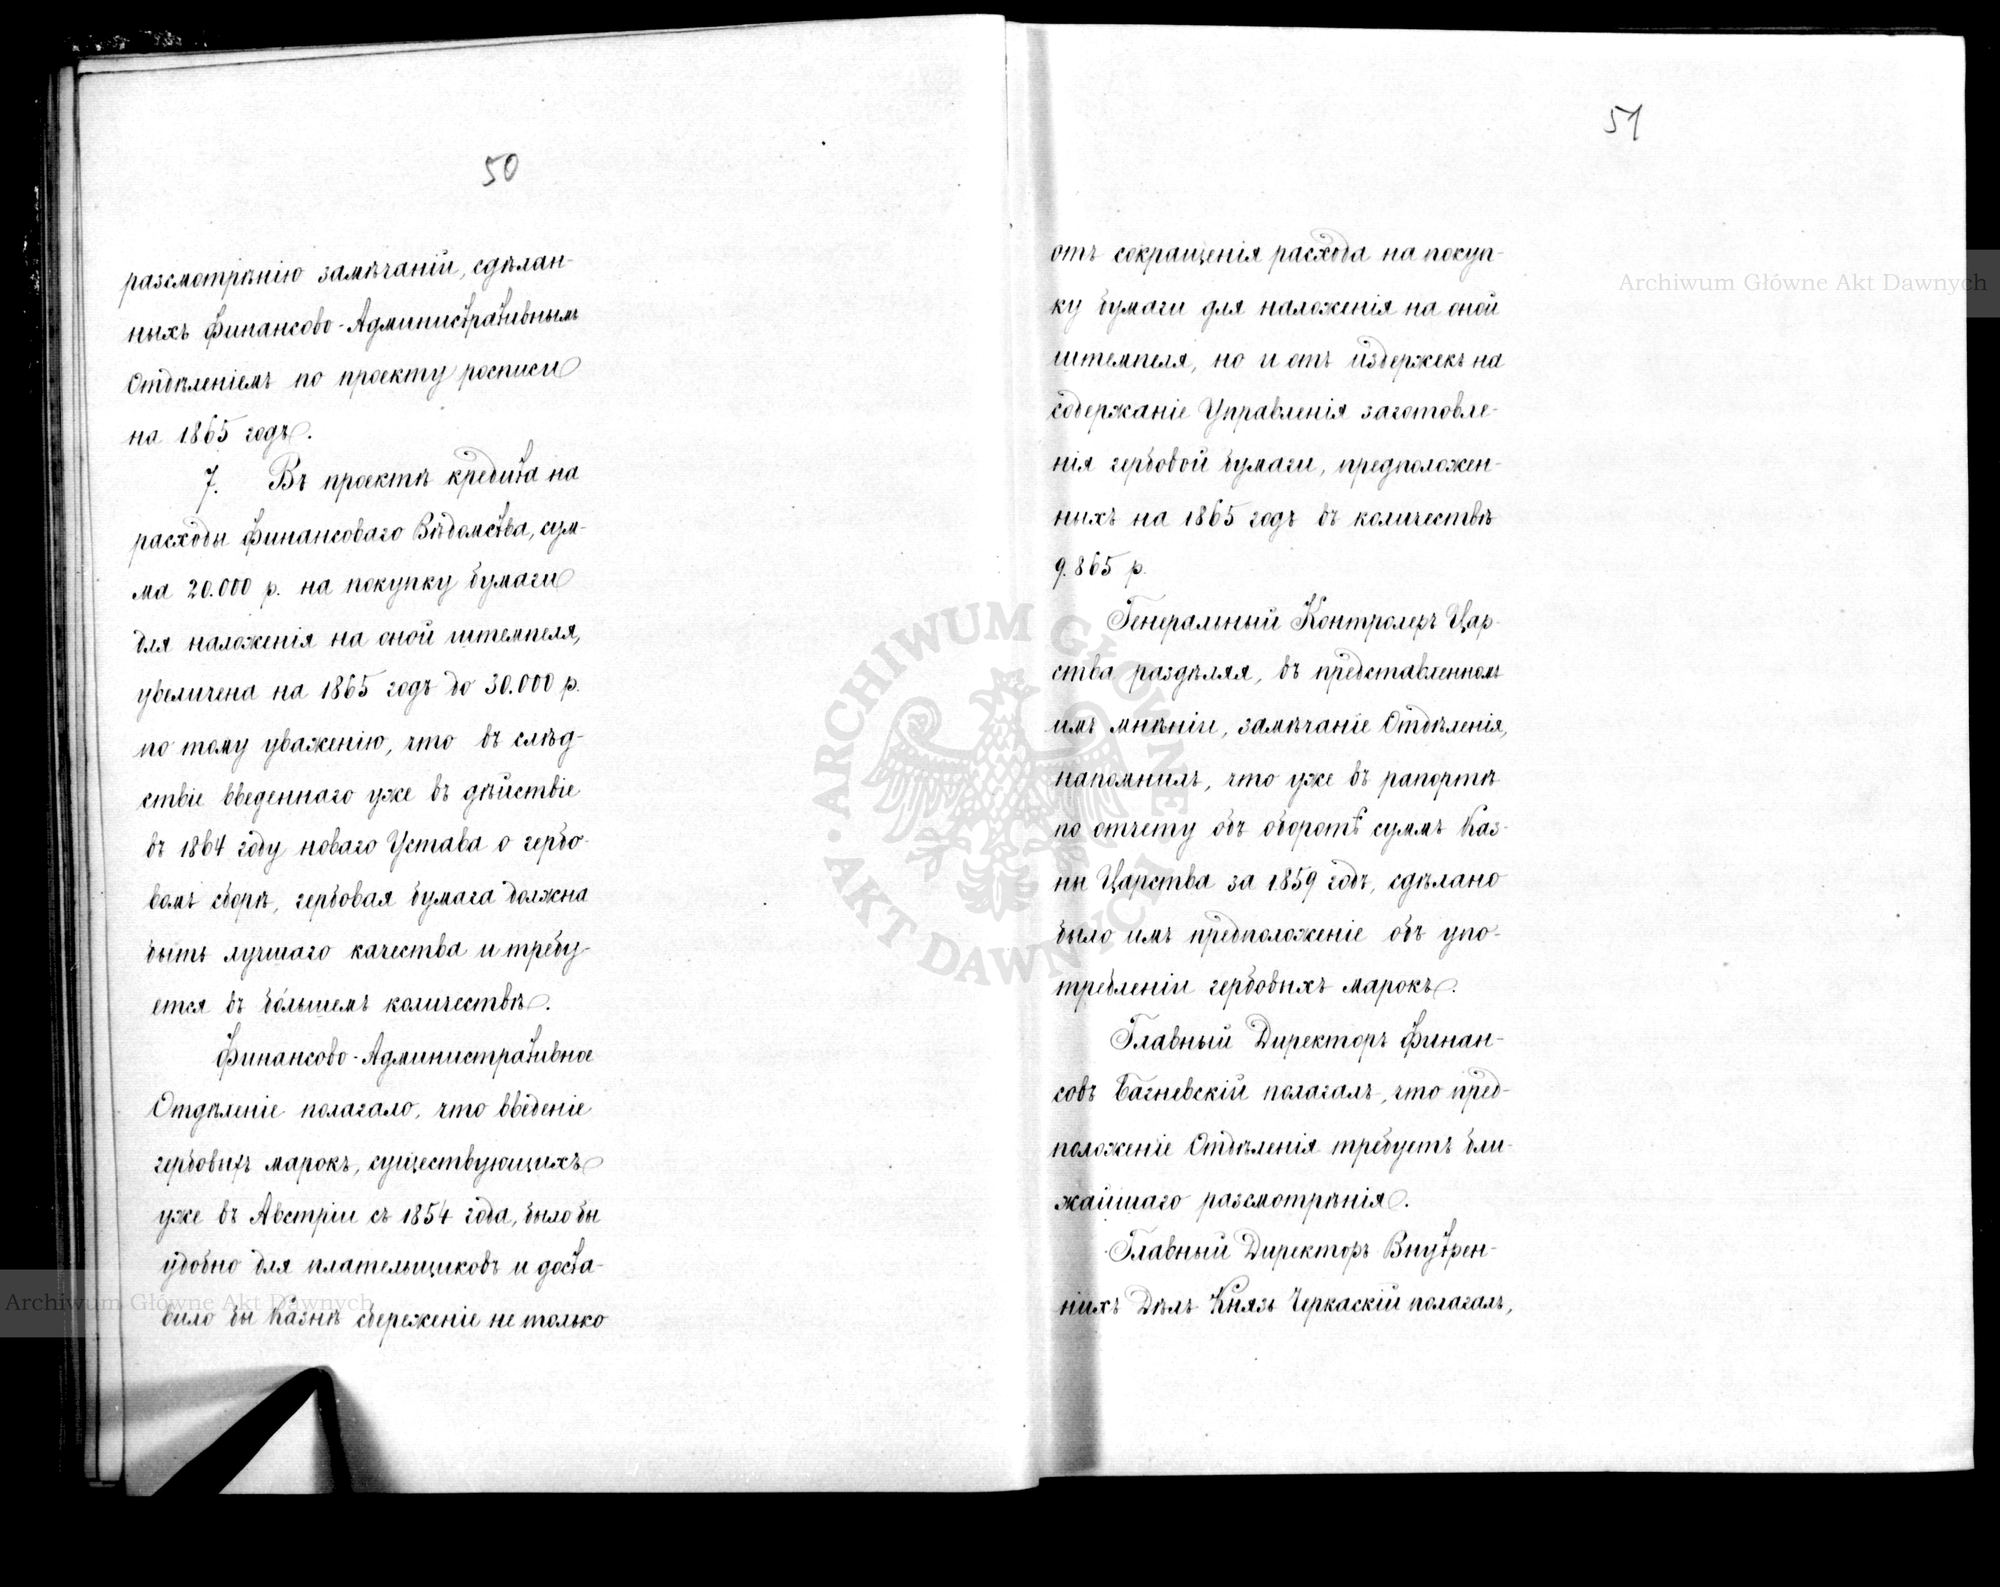 50
разсмотрѣнію замѣчаній, сдѣлан-
ныхъ Финансово-Административнымъ
Отдѣленіемъ по проекту росписи
на 1865 годъ.
7. Въ проектѣ кредита на
расходы Финансоваго Вѣдомства, сум-
ма 20.000 р. на покупку бумаги
для наложенія на оной штемпеля,
увеличена на 1865 годъ до 30.000 р.
по тому уваженію, что въ слѣд-
ствіе введеннаго уже въ дѣйствіе
въ 1864 году новаго Устава о гербо-
вомъ сборѣ, гербовая бумага должна
быть лучшаго качества и требу-
ется въ бóльшемъ количествѣ.
Финансово-Административное
Отдѣленіе полагало, что введеніе
гербовыхъ марокъ, существующихъ
уже въ Австріи съ 1854 года, было бы
удобно для плательщиковъ и доста-
вило бы Казнѣ сбереженіе не только
51
отъ сокращенія расхода на покуп-
ку бумаги для наложенія на оной
штемпеля, но и отъ издержекъ на
содержаніе Управленія заготовле-
нія гербовой бумаги, предположен-
ныхъ на 1865 годъ въ количествѣ
9.865 р.
Генеральный Контролеръ Цар-
ства раздѣляя, въ представленномъ
имъ мнѣніи, замѣчаніе Отдѣленія,
напомнилъ, что уже въ рапортѣ
по отчету объ оборотѣ суммъ Каз-
ны Царства за 1859 годъ, сдѣлано
было имъ предположеніе объ упо-
требленіи гербовыхъ марокъ.
Главный Директоръ Финан-
совъ Багневскій полагалъ, что пред-
положеніе Отдѣленія требуетъ бли-
жайшаго разсмотрѣнія.
Главный Директоръ Внутрен-
нихъ Дѣлъ Князь Черкаскій полагалъ,
Archiwum Główne Akt Dawnych
Archiwum Główne Akt Dawnych
ARCHIWUM GŁÓWNE AKT DAWNYCH